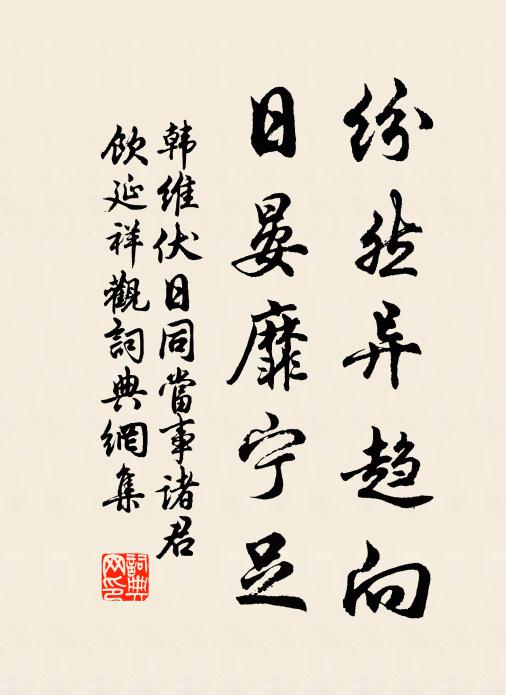 纷然异趋向
日晏靡宁足
韩维伏日同當事诸君
饮延祥觀詞典網集
詞典
网印